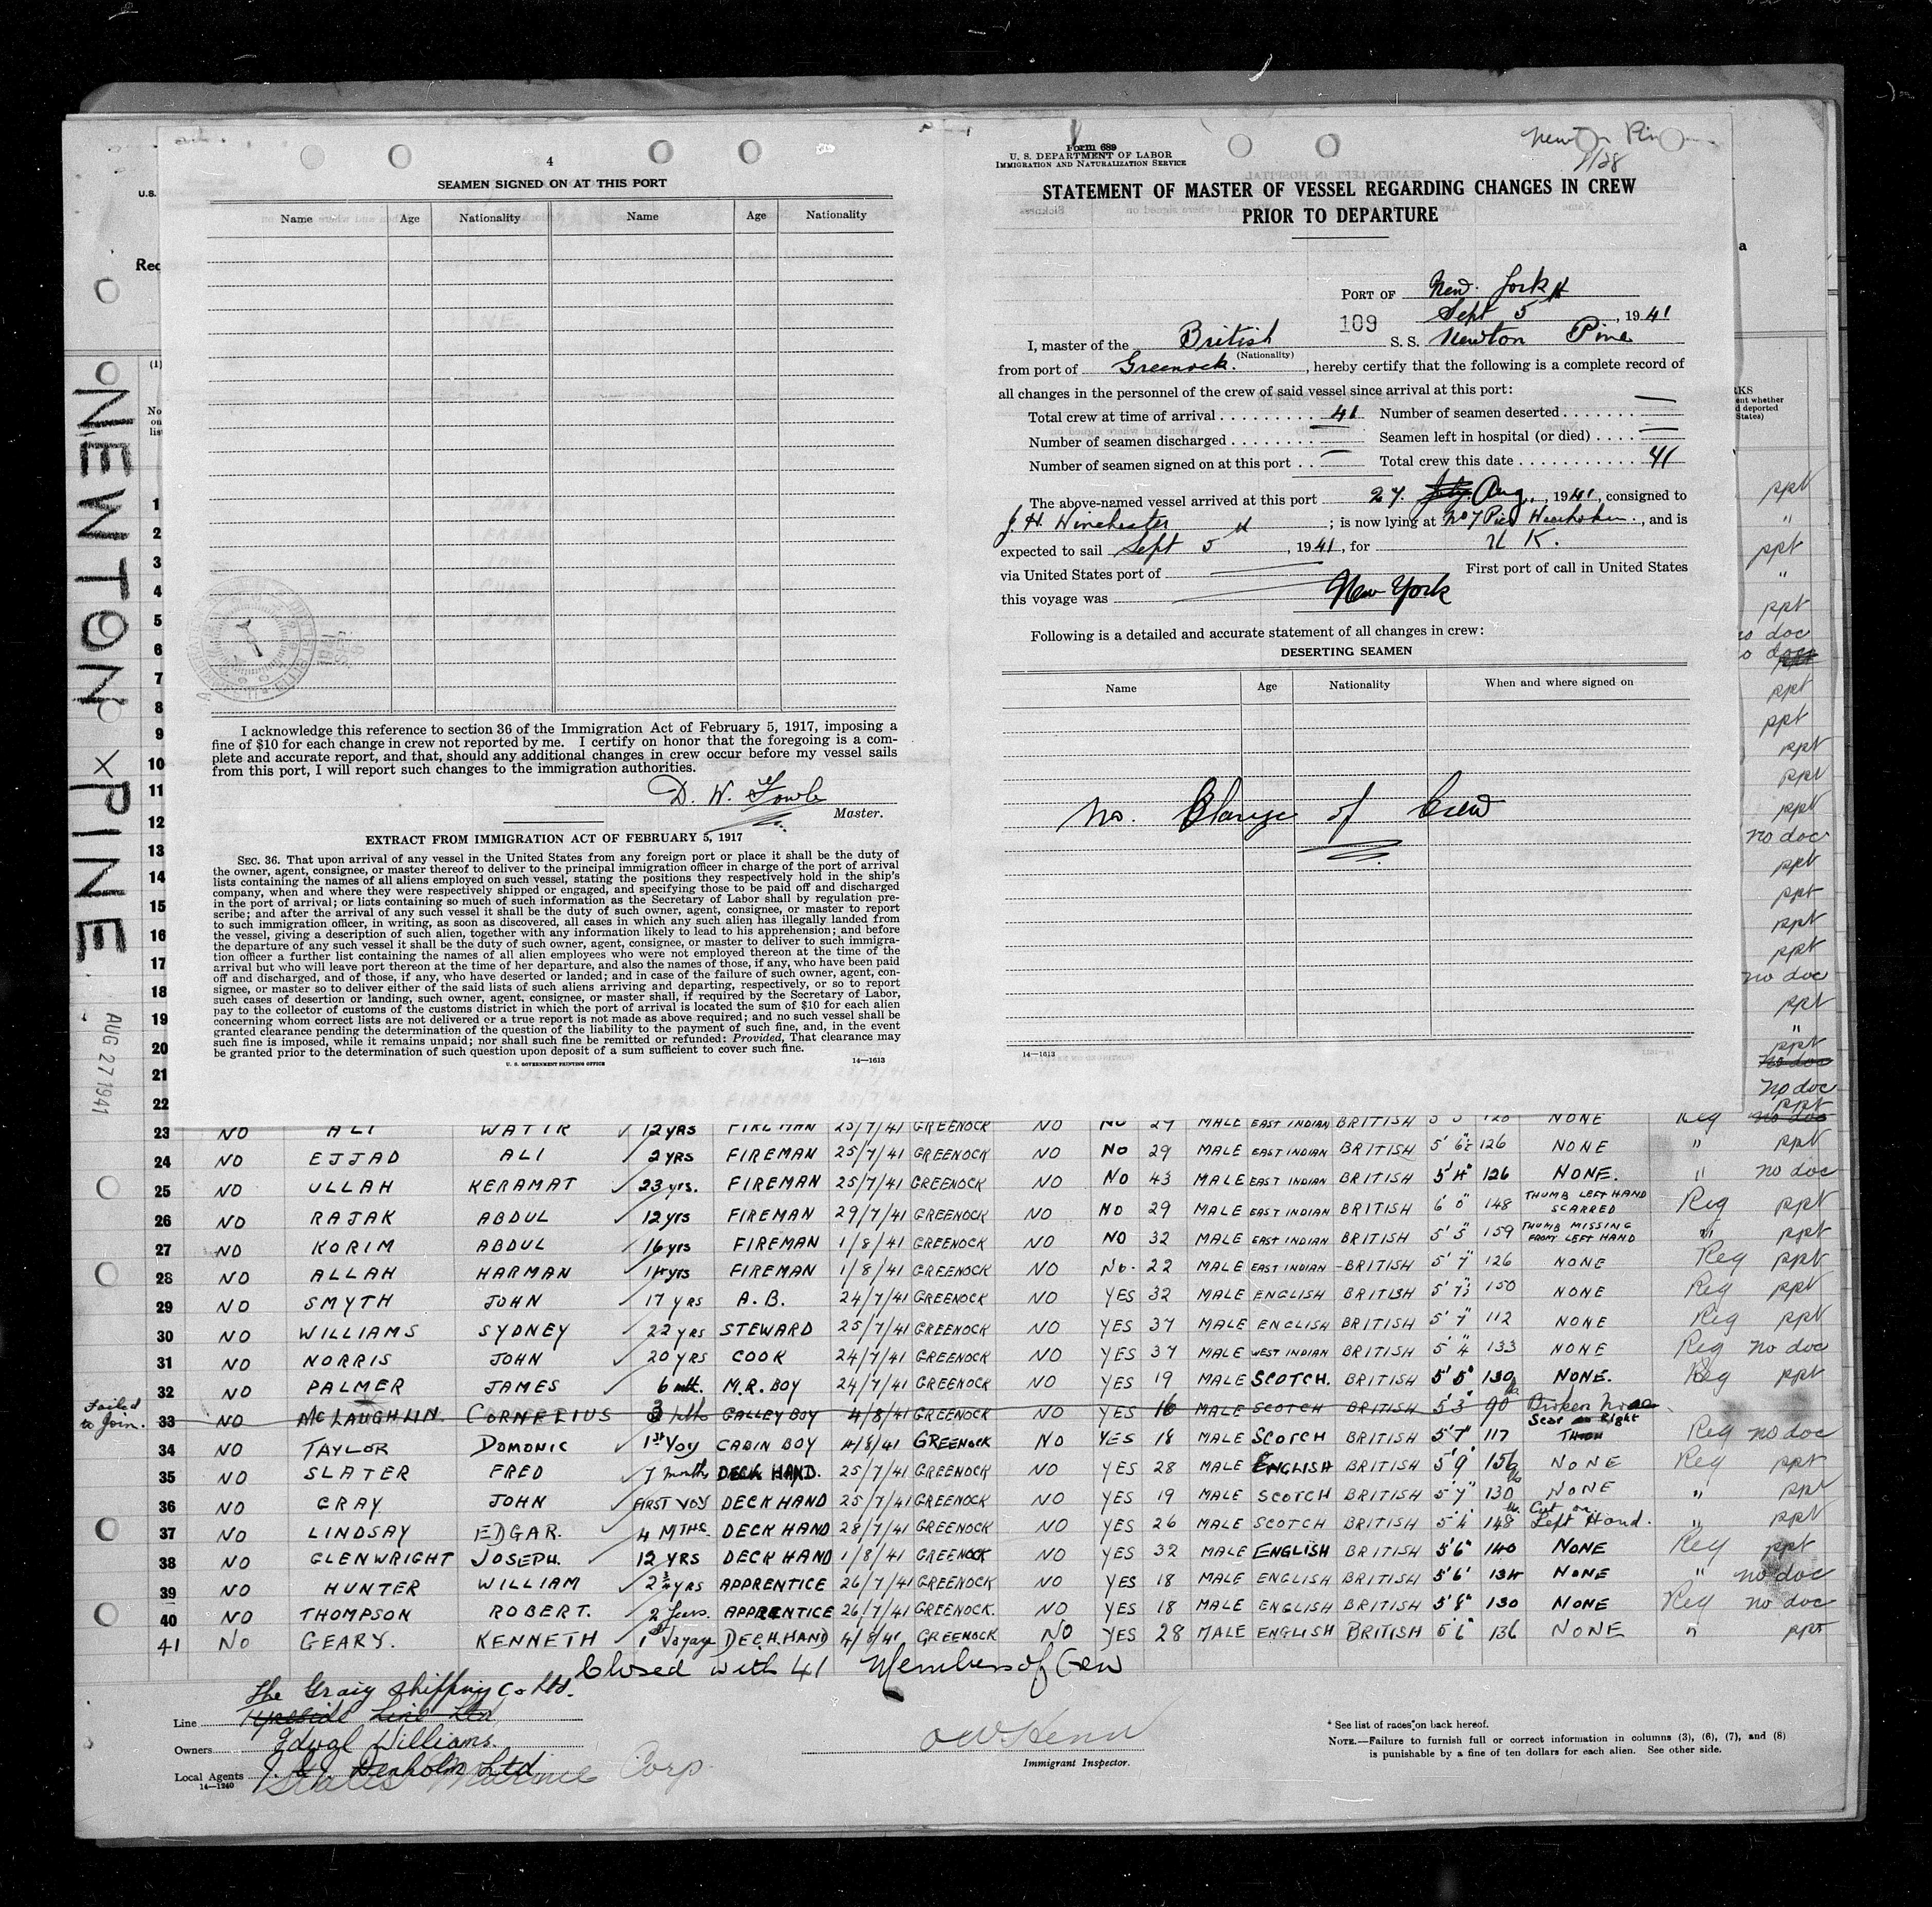 4
SEAMEN SIGNED ON AT THIS PORT
Name Age Nationality Name Age Nationality
I acknowledge this reference to section 36 of the Immigration Act of February 5, 1917, imposing a
fine of $10 for each change in crew not reported by me. I certify on honor that the foregoing is a com-
plete and accurate report, and that, should any additional changes in crew occur before my vessel sails
from this port, I will report such changes to the immigration authorities.
D. W. Fowle
Master.
EXTRACT FROM IMMIGRATION ACT OF FEBRUARY 5, 1917
SEC. 36. That upon arrival of any vessel in the United States from any foreign port or place it shall be the duty of
the owner, agent, consignee, or master thereof to deliver to the principal immigration officer in charge of the port of arrival
lists containing the names of all aliens employed on such vessel, stating the positions they respectively hold in the ship's
company, when and where they were respectively shipped or engaged, and specifying those to be paid off and discharged
in the port of arrival; or lists containing so much of such information as the Secretary of Labor shall by regulation pre-
scribe; and after the arrival of any such vessel it shall be the duty of such owner, agent, consignee, or master to report
to such immigration officer, in writing, as soon as discovered, all cases in which any such alien has illegally landed from
the vessel, giving a description of such alien, together with any information likely to lead to his apprehension; and before
the departure of any such vessel it shall be the duty of such owner, agent, consignee, or master to deliver to such immigra-
tion officer a further list containing the names of all alien employees who were not employed thereon at the time of the
arrival but who will leave port thereon at the time of her departure, and also the names of those, if any, who have been paid
off and discharged, and of those, if any, who have deserted or landed; and in case of the failure of such owner, agent, con-
signee, or master so to deliver either of the said lists of such aliens arriving and departing, respectively, or so to report
such cases of desertion or landing, such owner, agent, consignee, or master shall, if required by the Secretary of Labor,
pay to the collector of customs of the customs district in which the port of arrival is located the sum of $10 for each alien
concerning whom correct lists are not delivered or a true report is not made as above required; and no such vessel shall be
granted clearance pending the determination of the question of the liability to the payment of such fine, and, in the event
such fine is imposed, while it remains unpaid; nor shall such fine be remitted or refunded: Provided, That clearance may
be granted prior to the determination of such question upon deposit of a sum sufficient to cover such fine.
14—1613
U. S. GOVERNMENT PRINTING OFFICE
Form 689
U. S. DEPARTMENT OF LABOR
IMMIGRATION AND NATURALIZATION SERVICE
Newton Pine
STATEMENT OF MASTER OF VESSEL REGARDING CHANGES IN CREW
PRIOR TO DEPARTURE
PORT OF New York
109 Sept 5th, 1941
I, master of the British S. S. Newton Pine
(Nationality)
from port of Greenock., hereby certify that the following is a complete record of
all changes in the personnel of the crew of said vessel since arrival at this port:
Total crew at time of arrival 41 Number of seamen deserted —
Number of seamen discharged — Seamen left in hospital (or died) —
Number of seamen signed on at this port — Total crew this date 41
The above-named vessel arrived at this port 27. July Aug., 1941, consigned to
J. H. Winchester; is now lying at No 7 Pier Weehoken., and is
expected to sail Sept 5th, 1941, for U K.
via United States port of First port of call in United States
this voyage was New York
Following is a detailed and accurate statement of all changes in crew:
DESERTING SEAMEN
Name Age Nationality When and where signed on
No. Change of Crew
14—1613
NEWTON PINE
AUG 27 1941
23 NO ALI WATIR 12 YRS FIREMAN 25/7/41 GREENOCK NO NO 29 MALE EAST INDIAN BRITISH NONE Reg no doc
24 NO EJJAD ALI 2 YRS FIREMAN 25/7/41 GREENOCK NO NO 29 MALE EAST INDIAN BRITISH 5' 6½" 126 NONE " ppt
25 NO ULLAH KERAMAT 23 yrs. FIREMAN 25/7/41 GREENOCK NO NO 43 MALE EAST INDIAN BRITISH 5' 4" 126 NONE. " no doc
26 NO RAJAK ABDUL 12 yrs FIREMAN 29/7/41 GREENOCK NO NO 29 MALE EAST INDIAN BRITISH 6' 0" 148 THUMB LEFT HAND SCARRED Reg ppt
27 NO KORIM ABDUL 16 yrs FIREMAN 1/8/41 GREENOCK NO NO 32 MALE EAST INDIAN BRITISH 5' 5" 159 THUMB MISSING FROM LEFT HAND " ppt
28 NO ALLAH HARMAN 14 yrs FIREMAN 1/8/41 GREENOCK NO No. 22 MALE EAST INDIAN BRITISH 5' 7" 126 NONE Reg ppt
29 NO SMYTH JOHN 17 YRS A.B. 24/7/41 GREENOCK NO YES 32 MALE ENGLISH BRITISH 5' 7½ 150 NONE Reg ppt
30 NO WILLIAMS SYDNEY 22 YRS STEWARD 25/7/41 GREENOCK NO YES 37 MALE ENGLISH BRITISH 5' 7" 112 NONE Reg ppt
31 NO NORRIS JOHN 20 YRS COOK 24/7/41 GREENOCK NO YES 37 MALE WEST INDIAN BRITISH 5' 4" 133 NONE Reg no doc
32 NO PALMER JAMES 6 mth. M.R. BOY 24/7/41 GREENOCK NO YES 19 MALE SCOTCH. BRITISH 5' 5" 130 NONE. Reg ppt
Failed to Join. 33 NO McLAUGHLIN. CORNELIUS 3 mths GALLEY BOY 4/8/41 GREENOCK NO YES 16 MALE SCOTCH BRITISH 5' 3" 90 Broken Nose
34 NO TAYLOR DOMONIC 1st Voy CABIN BOY 4/8/41 GREENOCK NO YES 18 MALE SCOTCH BRITISH 5' 7" 117 Scar on Right THIGH Reg no doc
35 NO SLATER FRED 7 months DECK HAND. 25/7/41 GREENOCK NO YES 28 MALE ENGLISH BRITISH 5' 9" 156 NONE Reg ppt
36 NO GRAY JOHN FIRST VOY DECK HAND 25/7/41 GREENOCK NO YES 19 MALE SCOTCH BRITISH 5' 7" 130 NONE " ppt
37 NO LINDSAY EDGAR. 4 MTHS. DECK HAND 28/7/41 GREENOCK NO YES 26 MALE SCOTCH BRITISH 5' 4" 148 Cut on Left Hand. " ppt
38 NO GLENWRIGHT JOSEPH. 12 YRS DECK HAND 1/8/41 GREENOCK NO YES 32 MALE ENGLISH BRITISH 5' 6" 140 NONE Reg ppt
39 NO HUNTER WILLIAM 2¾ yrs APPRENTICE 26/7/41 GREENOCK NO YES 18 MALE ENGLISH BRITISH 5' 6" 134 NONE " no doc
40 NO THOMPSON ROBERT. 2 Years. APPRENTICE 26/7/41 GREENOCK. NO YES 18 MALE ENGLISH BRITISH 5' 8" 130 NONE Reg no doc
41 No GEARY. KENNETH 1st Voyage DECK HAND 4/8/41 GREENOCK NO YES 28 MALE ENGLISH BRITISH 5' 6" 136 NONE " ppt
Closed with 41 Members of Crew
The Graig Shipping Co Ltd.
Line Tyneside Line Ltd
Owners Idwal Williams.
Local Agents J. & J. Denholm Ltd
States Marine Corp.
14—1240
Immigrant Inspector.
* See list of races on back hereof.
NOTE.—Failure to furnish full or correct information in columns (3), (6), (7), and (8)
is punishable by a fine of ten dollars for each alien. See other side.